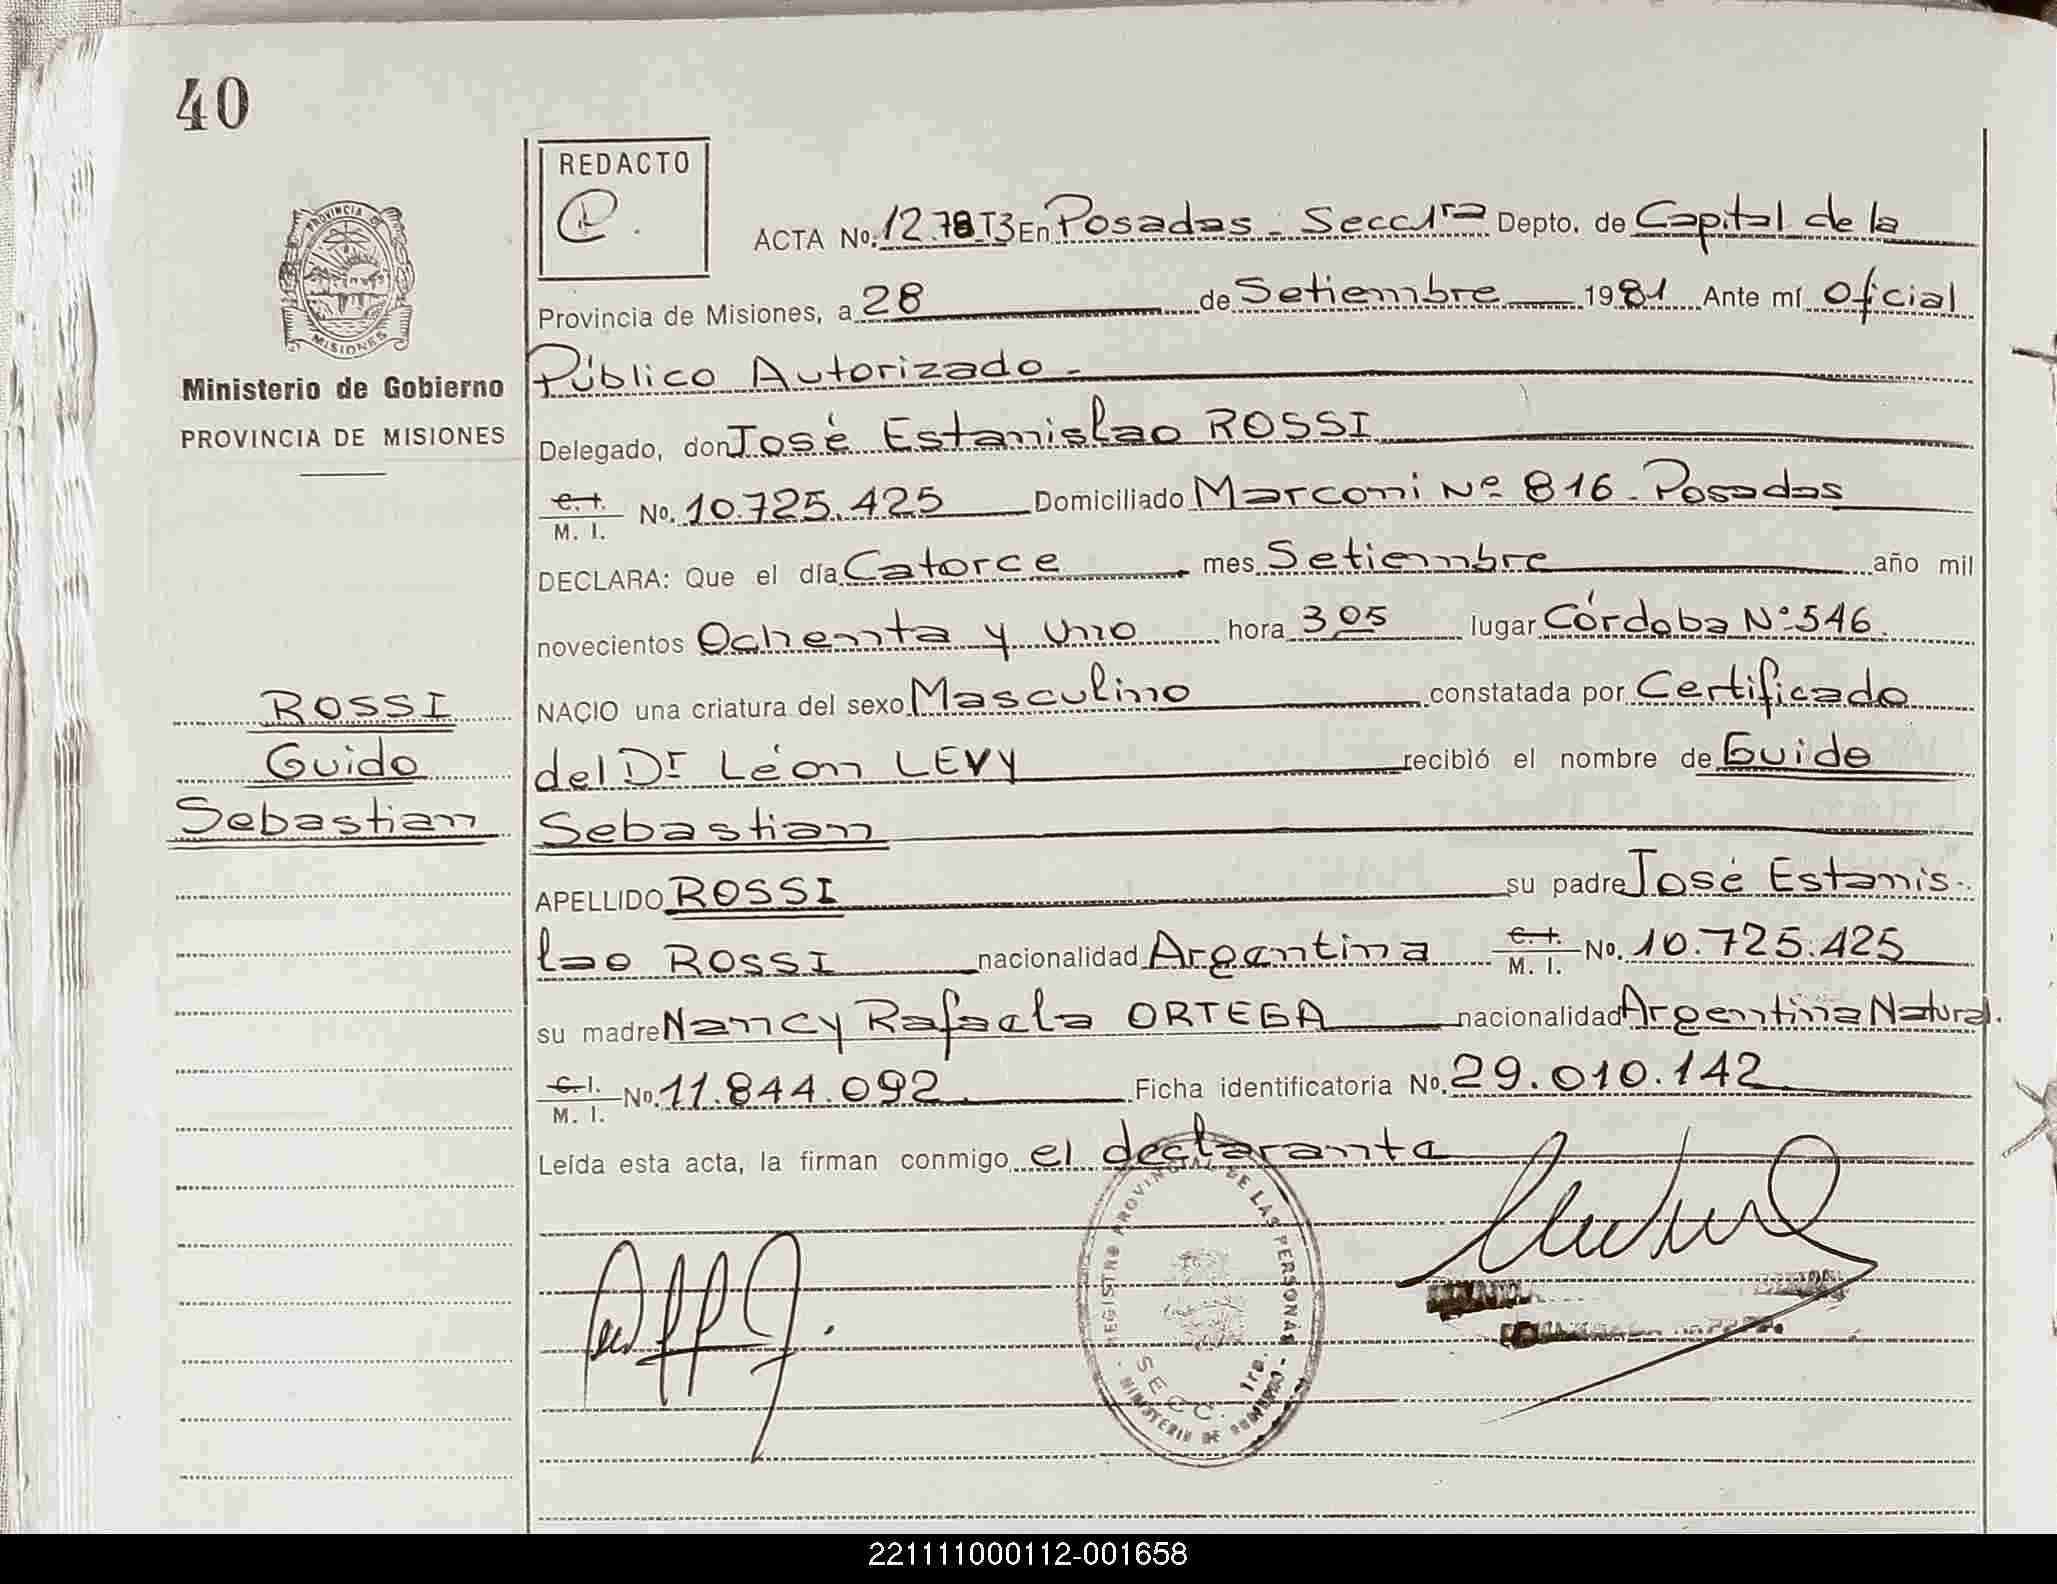 40
REDACTO
C.
PROVINCIA DE
MISIONES
Ministerio de Gobierno
PROVINCIA DE MISIONES
ROSSI
Guido
Sebastian
ACTA No. 1278 T3 En Posadas - Secc 1ra Depto. de Capital de la
Provincia de Misiones, a 28 de Setiembre 1981 Ante mí Oficial
Público Autorizado -
Delegado, don José Estanislao ROSSI
C. I. M. I. No. 10.725.425 Domiciliado Marconi Nº 816 - Posadas
DECLARA: Que el día Catorce mes Setiembre año mil
novecientos Ochenta y Uno hora 3 05 lugar Córdoba Nº 546.
NACIO una criatura del sexo Masculino constatada por Certificado
del Dr León LEVY recibió el nombre de Guido
Sebastian
APELLIDO ROSSI su padre José Estanis-
lao ROSSI nacionalidad Argentina C. I. M. I. No. 10.725.425
su madre Nancy Rafaela ORTEGA nacionalidad Argentina Natural.
C. I. M. I. No. 11.844.092. Ficha identificatoria No. 29.010.142
Leída esta acta, la firman conmigo el declarante
REGISTRO PROVINCIAL DE LAS PERSONAS
SECC. 1ra.
MINISTERIO DE GOBIERNO
221111000112-001658